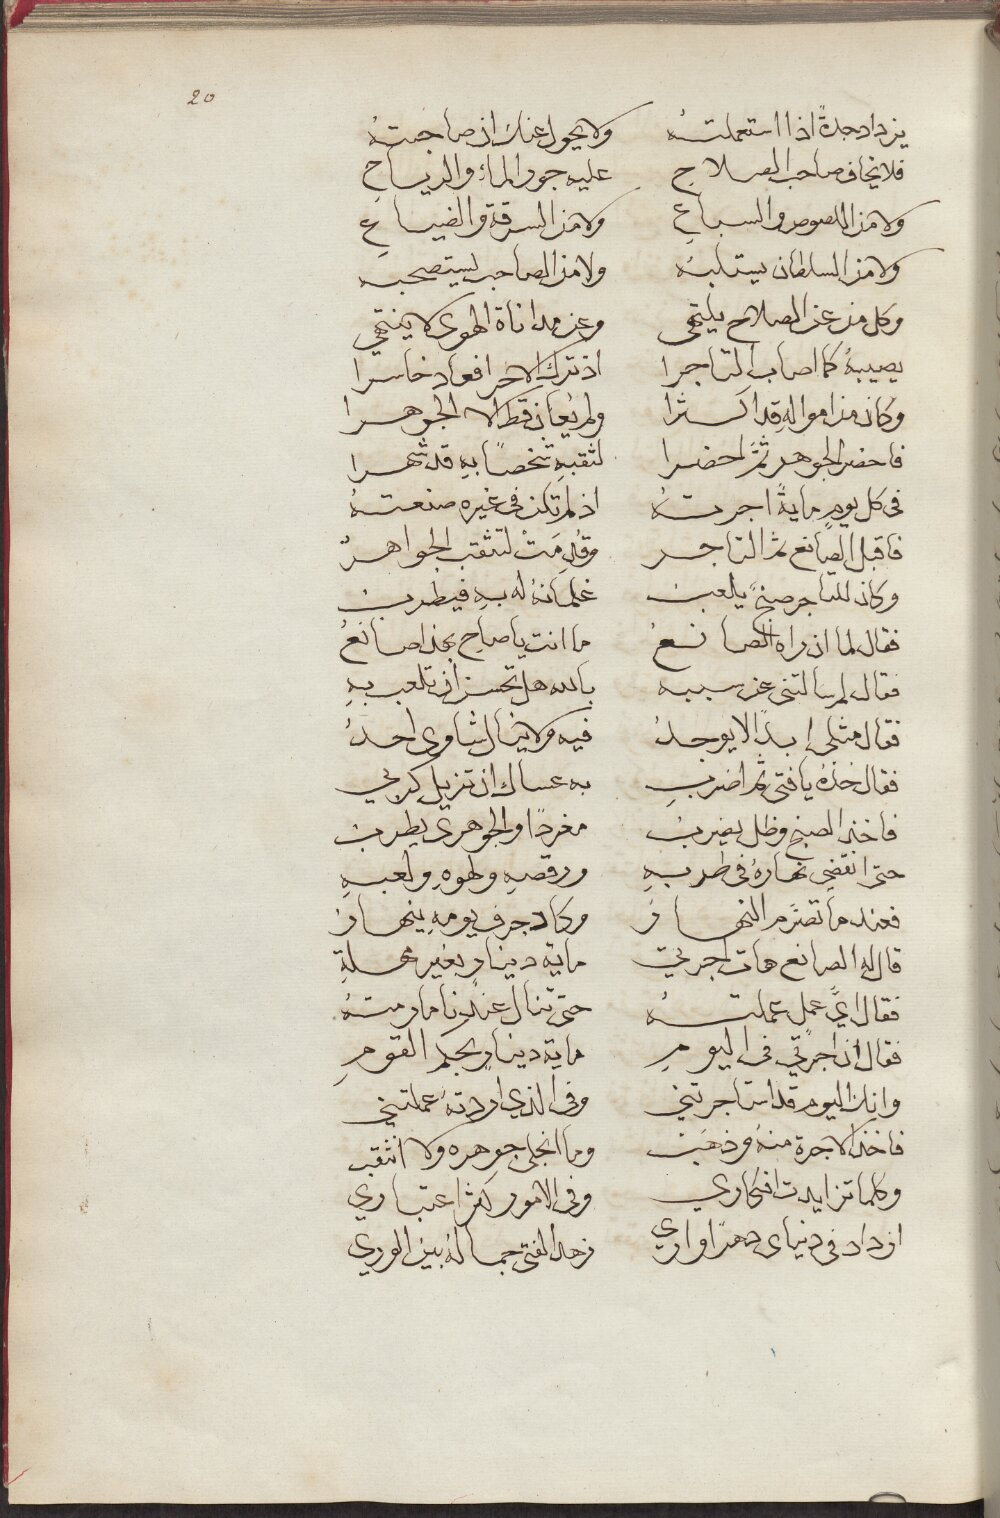 20
يزداد جدةً اذا استعملته ولا يحول عنك ان صاحبته
فلا يخاف صاحب الصلاح عليه جور الماء والرياح
ولا من اللصوص والسباع ولا من السرقة والضياع
ولا من السلطان يستلبه ولا من الصاحب يستصحبه
وكل من عن الصلاح يلتهى وعن مداناة الهوى لا ينتهي
يصيبهُ كما اصاب التاجرا اذ ترك الاخرا فعاد خاسرا
وكان من امواله قد اكثرا ولم يعان قط الا الجوهرا
فاحضر الجوهر ثمَّ احضرا لثقبهِ شخصًا بهِ قد شهرا
فى كل يومٍ مايةً اجرتهُ اذ لم تكن فى غيره صنعتهُ
فاقبل الصانع ثم التاجر وقُدِمَتْ لتثقب الجواهرُ
وكان للتاجر صنجٌ يلعب غلمانهُ له بهِ فيطرب
فقال لما ان راه الصانعُ ما انت يا صاح بهذا صانعُ
فقال لم سالتنى عن سببه بالله هل تحسن ان تلعب بهِ
فقال مثلى ابدًا لا يوجدُ فيه ولا ينال شاوى احدُ
فقال خذهُ يا فتى ثم اضربِ به عساك ان تزيل كربي
فاخذ الصنج وظل يضربُ مغردًا والجوهرى يطربُ
حتى انقضى نهارهُ فى طربهِ ورقصهِ ولهوهِ ولعبهِ
فعند ما تصرَّم النهارُ وكاد جرف يومهِ ينهارُ
قال له الصانع هات اجرتي ماية دينارٍ بغير مهلةِ
فقال ايَّ عمل عملتهُ حتى تنال عندنا ما رمتهُ
فقال ان اجرتي فى اليومِ ماية دينارٍ بحكم القومِ
وانك اليوم قد استاجرتني وفى الذي اردتهُ عملتني
فاخذ الاجرة منهُ وذهب وما انجلى جوهره ولا انثقب
وكلما تزايدت افكاري وفى الامور كثر اعتباري
ازداد فى دنياى زهدًا وارى زهد الفتى جمالهُ بين الورى